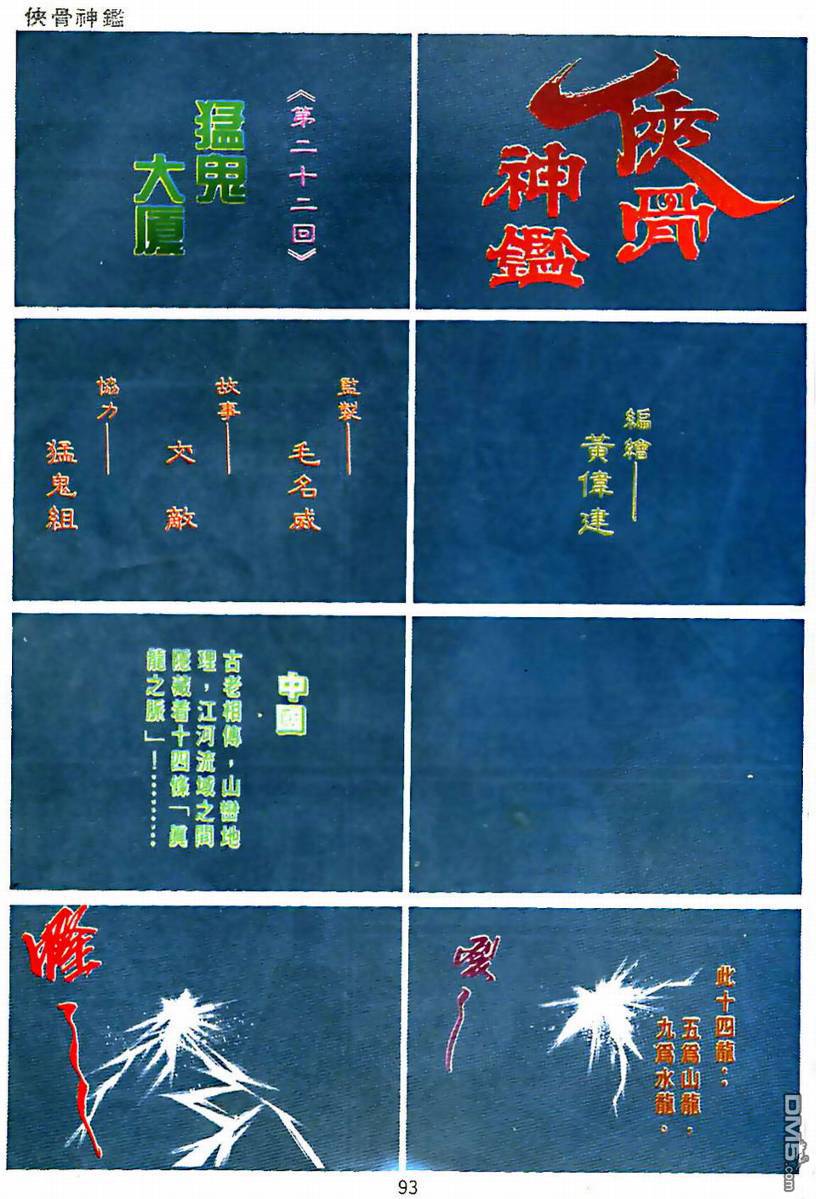 俠骨神鑑
俠骨
神鑑
《第二十二回》
猛鬼
大廈
編繪
黃偉建
監製
毛名威
故事
文敵
協力
猛鬼組
中國
古老相傳，山巒地
理，江河流域之間
隱藏着十四條「眞
龍之脈」！…………
此十四龍：
五爲山龍，
九爲水龍。
嚨
93
DM5.com